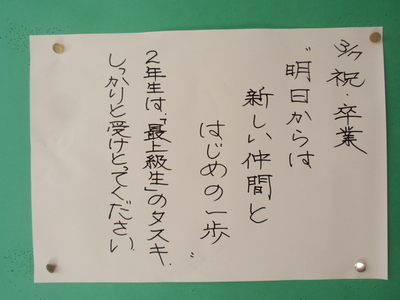 3/7 祝・卒業
〝明日からは
新しい仲間と
はじめの一歩〟
2年生は、「最上級生」のタスキ、
しっかりと受けとってください